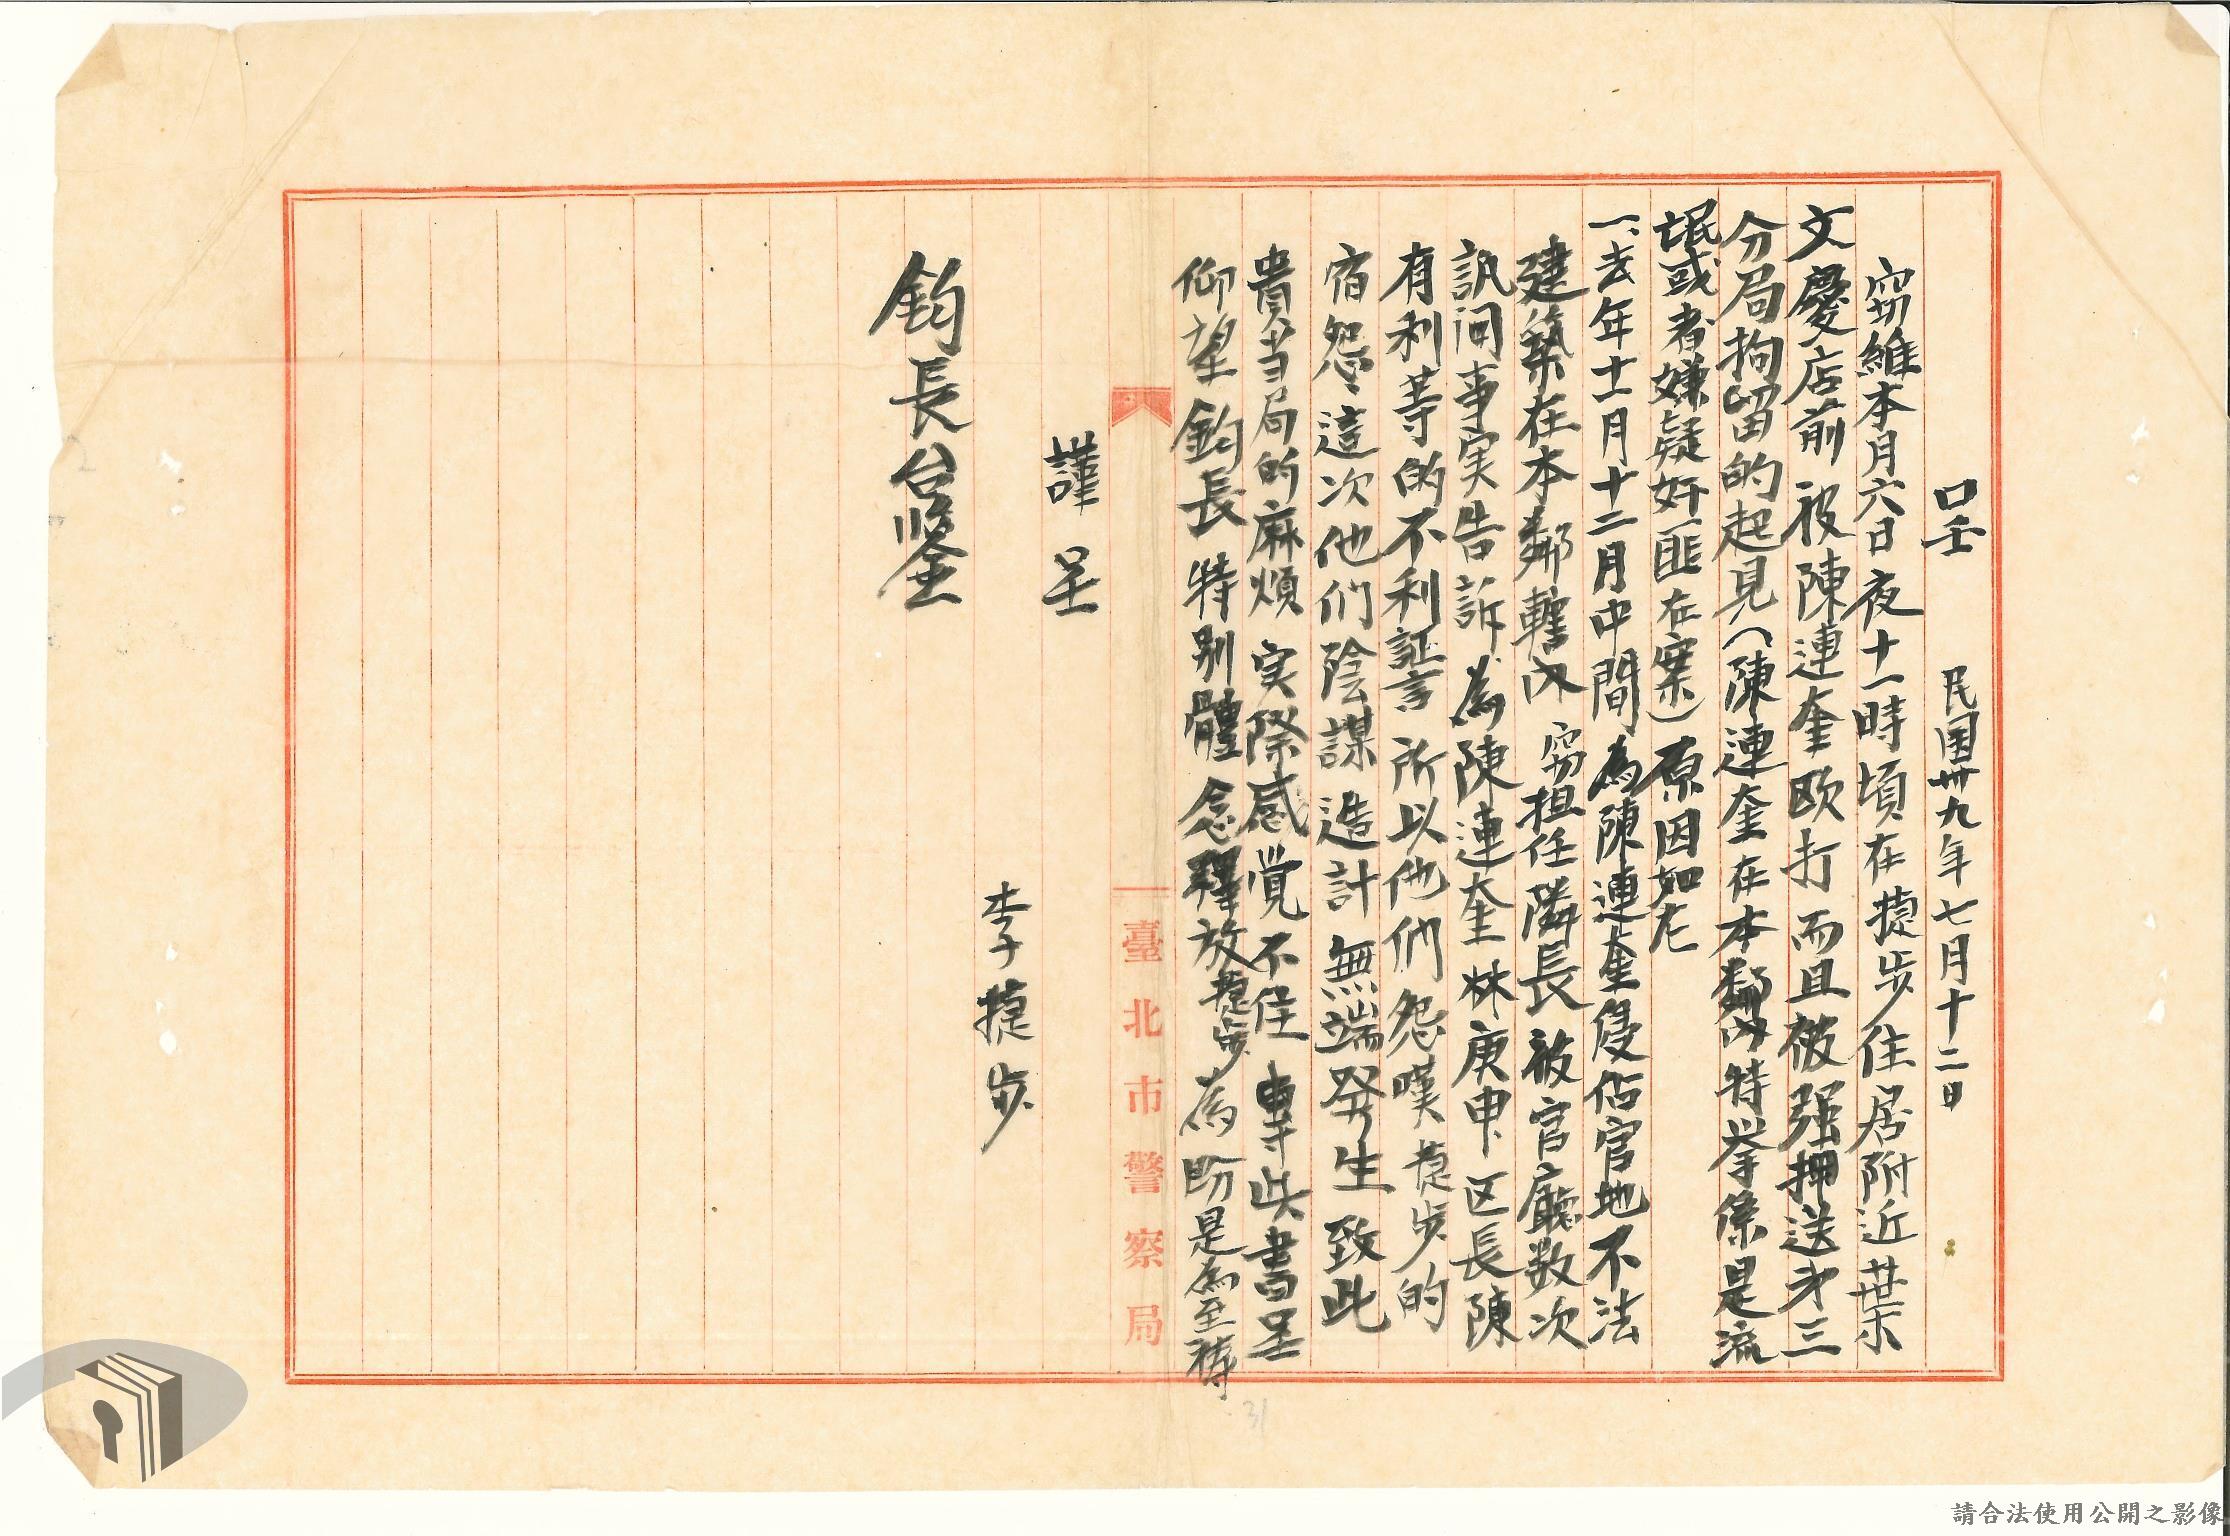 口呈　民国卅九年七月十二日
窃維本月六日夜十一時頃在捷步住居附近葉
文慶店前被陳連奎欧打而且被强押送才三
分局拘留的起見(陳連奎在本鄰內特举係是流
氓或者嫌疑奸匪在案)原因如左
一、去年十一月十二月中間為陳連奎侵佔官地不法
建築在本鄰轄內窃担任隣長被官廳数次
訊问事实告訴為陳連奎林庚申区長陳
有利等的不利証言所以他們怨嘆捷步的
宿怨這次他們陰謀造計無端発生致此
貴当局的麻煩实際感覚不佳專此書呈
仰望鈞長特别體念釋放捷步為盼是為至祷
謹呈
李捷步
鈞長台鑒
臺北市警察局
31
2
請合法使用公開之影像